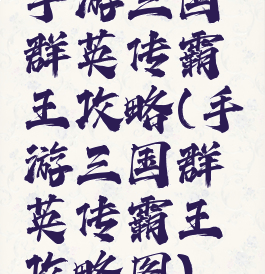 手游三国
群英传霸
王攻略(手
游三国群
英传霸王
攻略图)